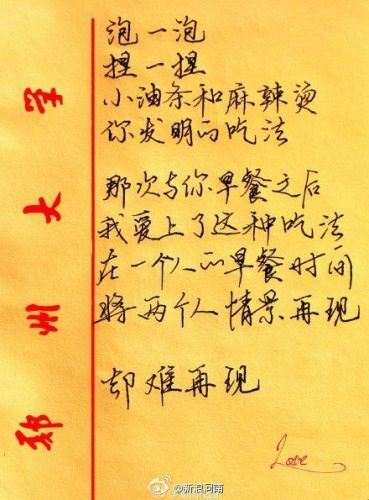 泡一泡
捏一捏
小油条和麻辣烫
你发明的吃法
那次与你早餐之后
我爱上了这种吃法
在一个人的早餐时间
将两个人情景再现
却难再现
Love
郑州大学
@新浪河南